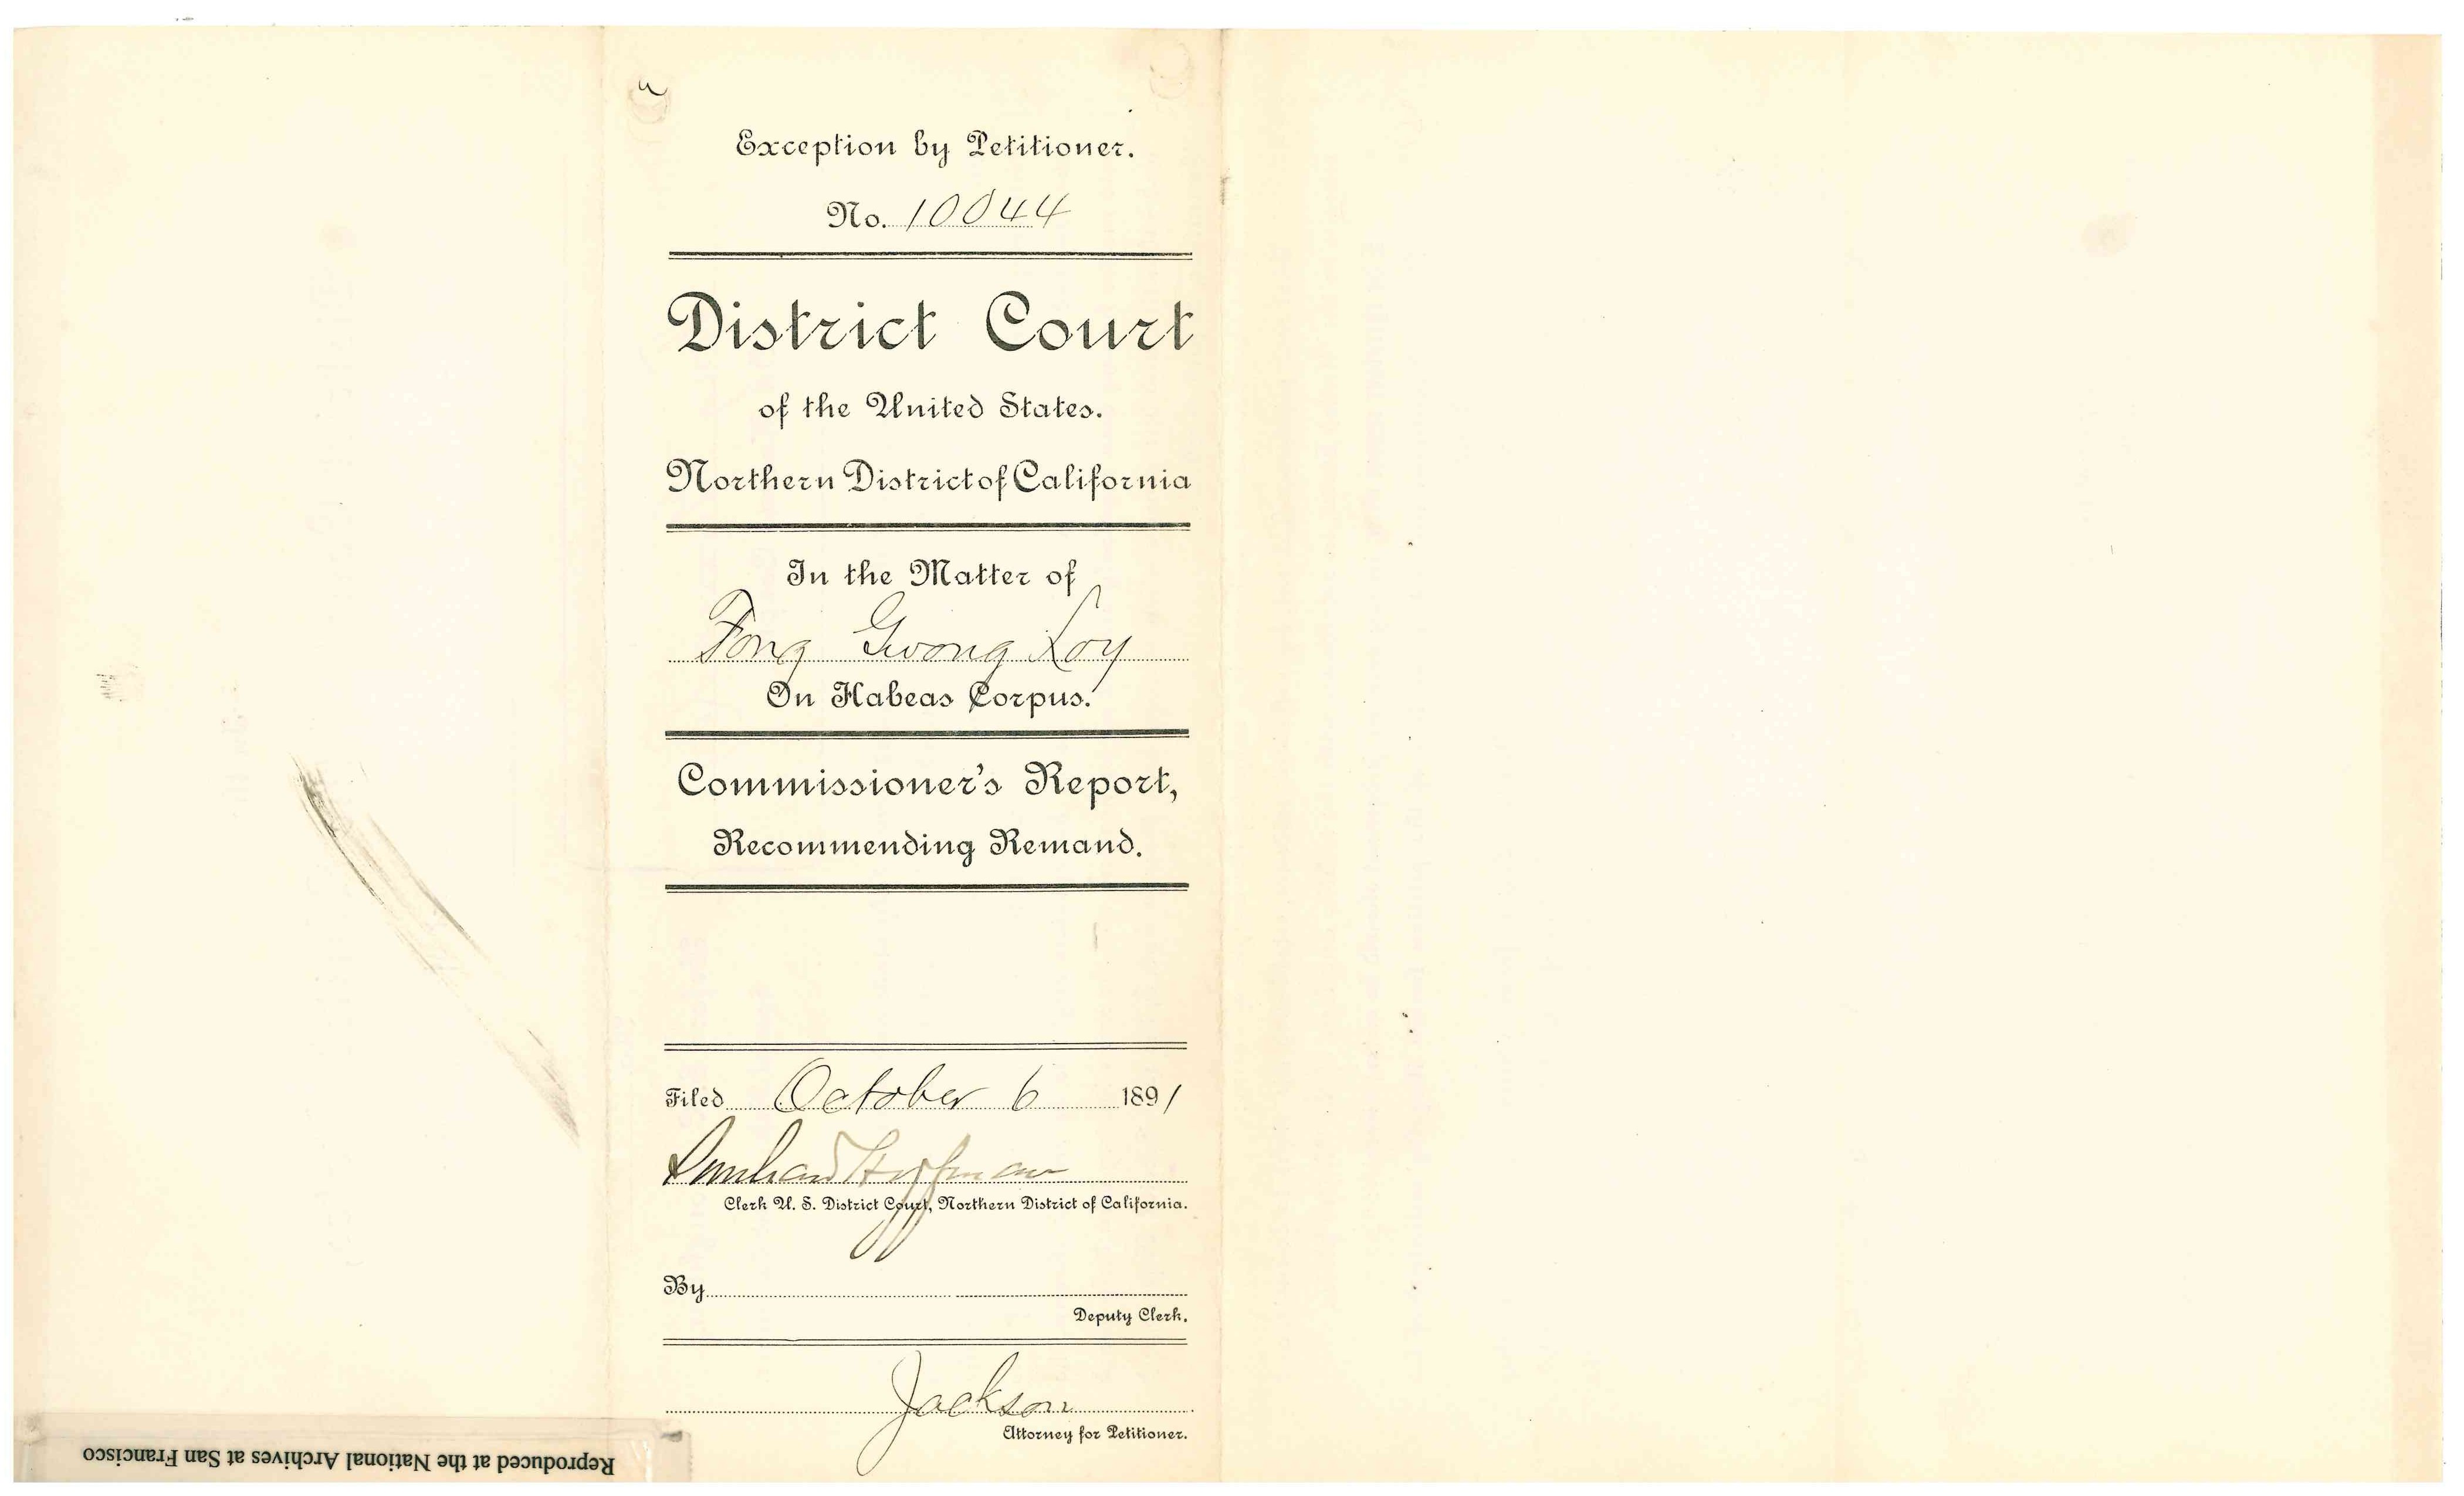 Exception by Petitioner.
No. 10044
District Court
of the United States.
Northern District of California
In the Matter of
Fong Gwong Loy
On Habeas Corpus.
Commissioner's Report,
Recommending Remand.
Filed October 6 1891
Hoffman
Clerk U. S. District Court, Northern District of California.
By
Deputy Clerk.
Jackson
Attorney for Petitioner.
Reproduced at the National Archives at San Francisco